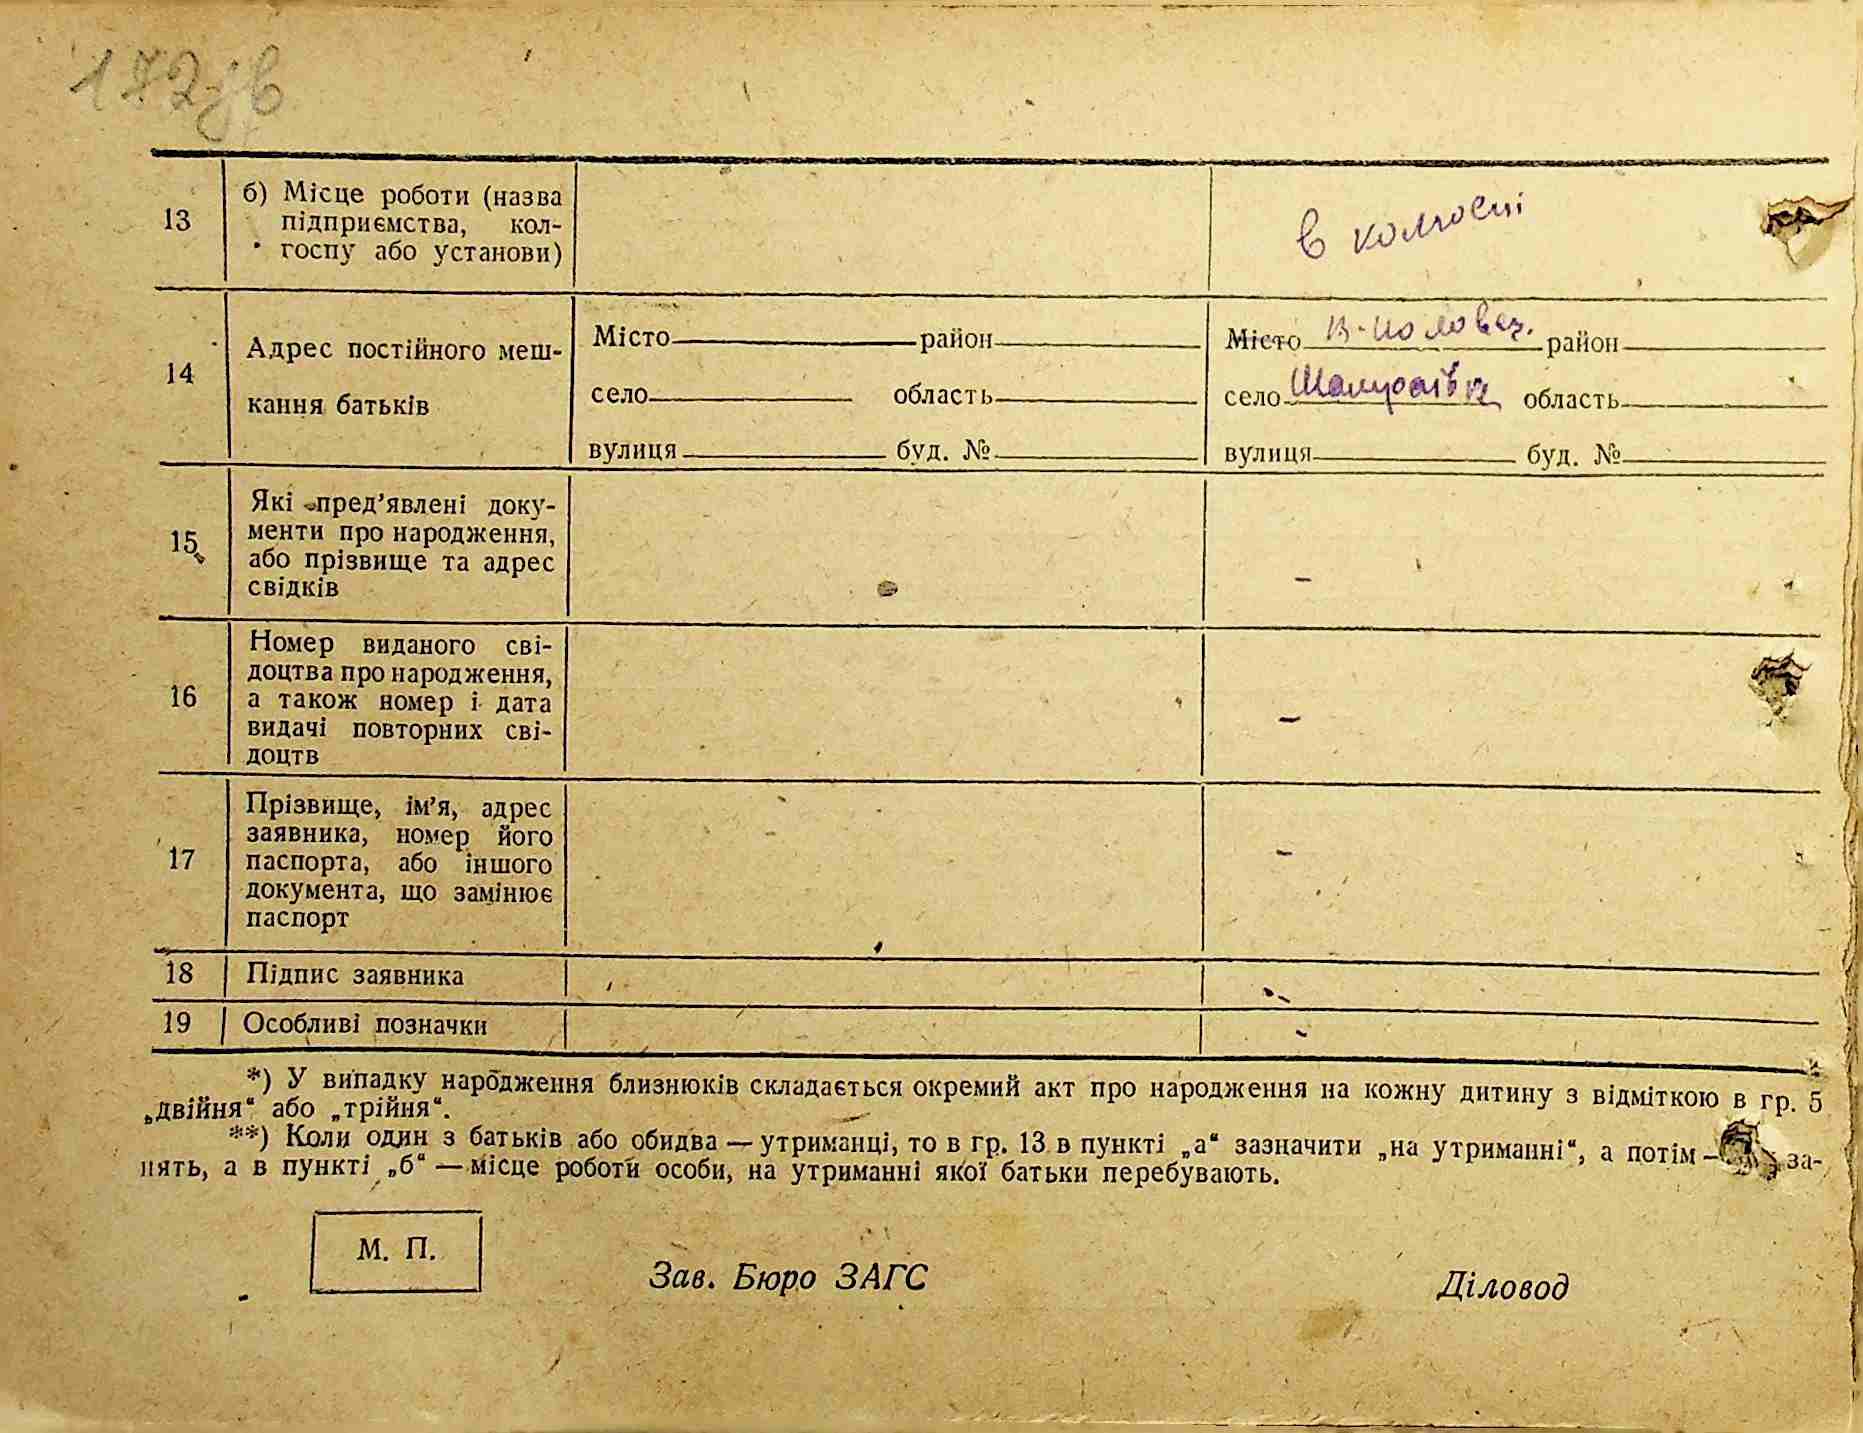 172зв
13
б) Місце роботи (назва
підприємства, кол-
госпу або установи)
в колгоспі
14
Адрес постійного меш-
кання батьків
Місто район
село область
вулиця буд. №
Місто В-Половец. район
село область
вулиця буд. №
15
Які пред’явлені доку-
менти про народження,
або прізвище та адрес
свідків
–
16
Номер виданого сві-
доцтва про народження,
а також номер і дата
видачі повторних сві-
доцтв
–
17
Прізвище, ім’я, адрес
заявника, номер його
паспорта, або іншого
документа, що замінює
паспорт
–
18 Підпис заявника –
19 Особливі позначки –
*) У випадку народження близнюків складається окремий акт про народження на кожну дитину з відміткою в гр. 5
„двійня“ або „трійня“.
**) Коли один з батьків або обидва — утриманці, то в гр. 13 в пункті „а“ зазначити „на утриманні“, а потім — за-
нять, а в пункті „б“ — місце роботи особи, на утриманні якої батьки перебувають.
М. П.
Зав. Бюро ЗАГС
Діловод